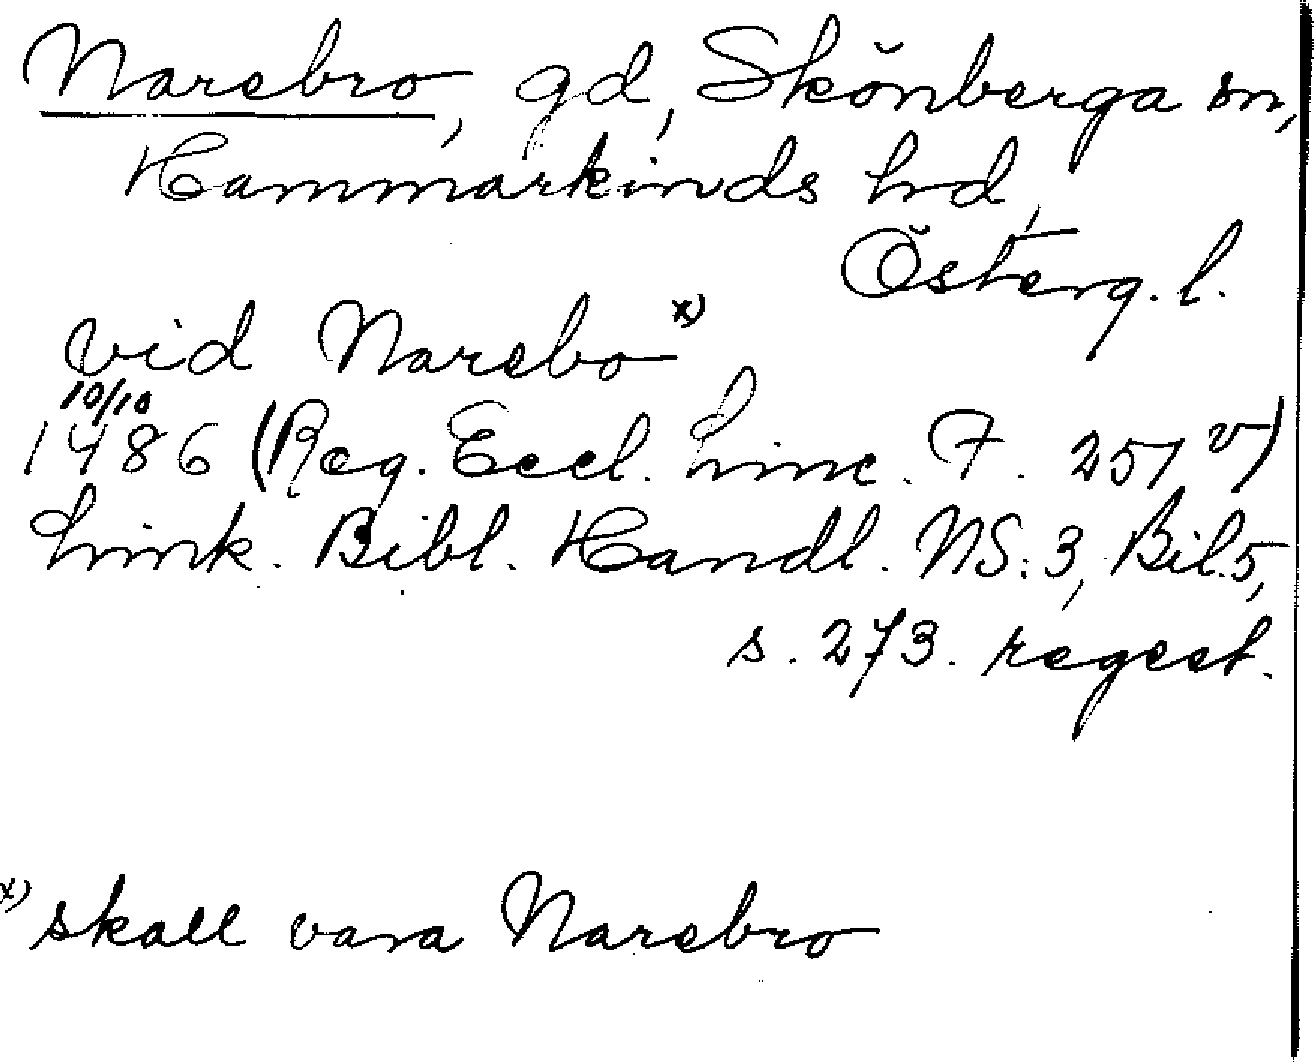 Narebro, gd, Skönberga sn,
Hammarkinds hd,
Österg.l.
vid Narebo x)
10/10
1486 (Reg. Eccl. Linc. F. 251 v)
Link. Bibl. Handl. NS: 3, Bil. 5,
s. 273. regest.
x) skall vara Narebro